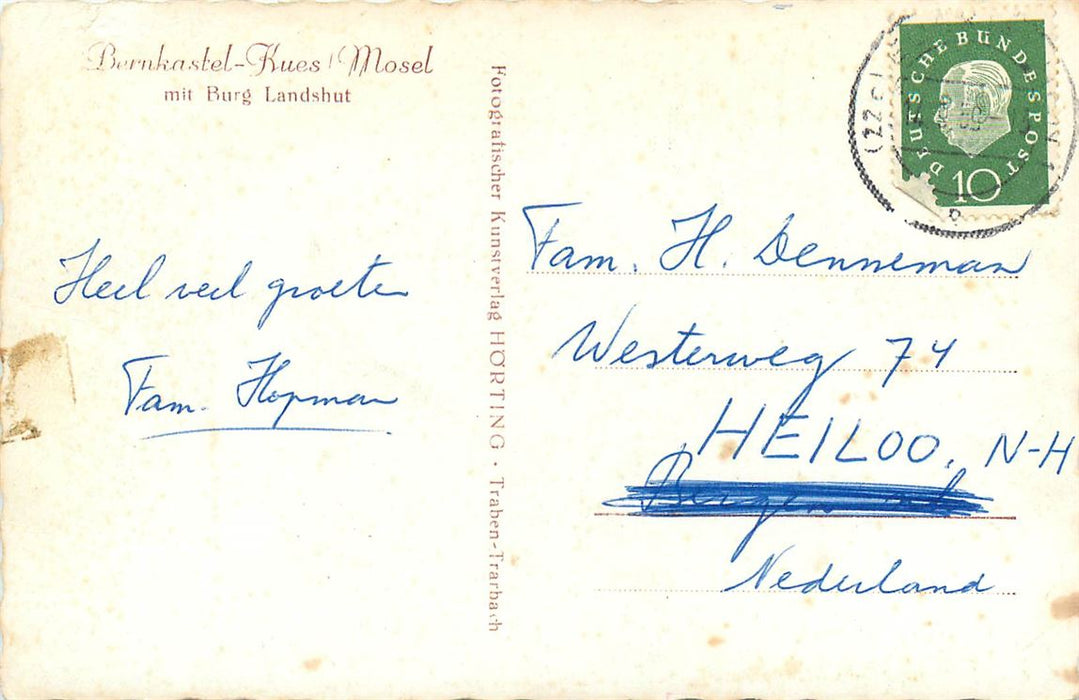 Bernkastel-Kues / Mosel
mit Burg Landshut
Heel veel groeten
Fam. Hopman
Fotografischer Kunstverlag HÖRTING · Traben-Trarbach
DEUTSCHE BUNDESPOST
10
Fam. H. Denneman
Westerweg 74
HEILOO, N-H
Bergen
Nederland